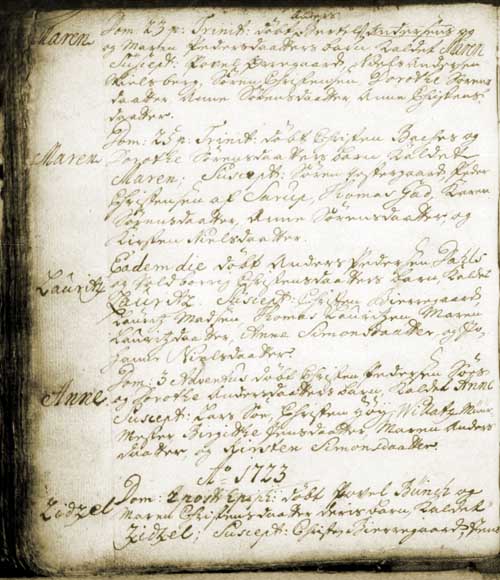 Anders
Maren Dom: 23 p: Trinit: døbt Bertel Andersens og
og Maren Pedersdaatters barn kaldet Maren
Suscept: Povel Nørregaard, Niels Andersen
Søren Christensen, Dorothe Sørens
daatter, Anne Sørensdaatter Anne Christens-
daatter.
Dom: 25 p: Trinit: døbt Christen Baches og
Maren Dorothe Sørensdaatters barn kaldet
Maren; Suscept: Søren Peder
Christensen af Sarup, Thomas Gad, Karen
Sørensdaatter, Anne Sørensdaatter, og
Kirsten Nielsdaatter.
Eadem die døbt Anders Pedersen
Lauritz og Christensdaatters barn, kaldet
Lauritz. Suscept: Christen Bierregaard,
Lauritz Madsen Thomas Lauritzen, Maren
Lauritzdaatter, Anne Simonsdaatter og Jo,
hanne Nielsdaatter.
Dom: 3 Adventus døbt Christen Pedersen Søes
Anne og Dorothe Andersdaatters barn, kaldet Anne
Suscept: Lars Søe, Christen Høy,
Mester Birgitthe Jensdaatter, Maren Anders
daatter, og Kirsten Simonsdaatter.
Ao 1723
Dom: 2 post Epiph: døbt Povel Bunch og
Zidzel Maren Christensdaatter deris barn, kaldet
Zidzel; Suscept: Christen Bierregaard,